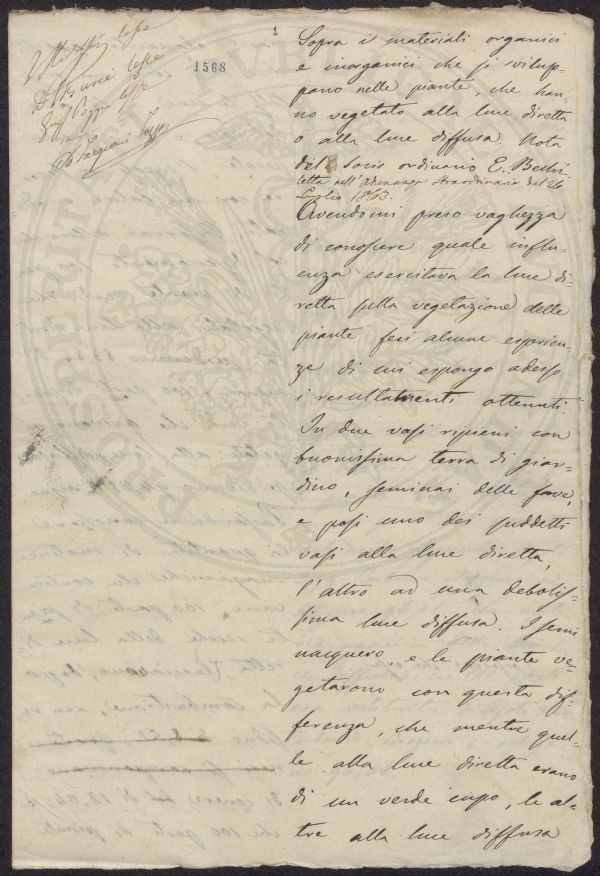 1
1568
Sopra i materiali organici
e inorganici che si svilup-
pano nelle piante, che han-
no vegetato alla luce diretta
o alla luce diffusa. Nota
del Socio ordinario E. Bechi
letta nell'Adunanza straordinaria del 26
Luglio 1863.
Avendomi preso vaghezza
di conoscere quale influ-
enza esercitava la luce di-
retta sulla vegetazione delle
piante feci alcune esperien-
ze di cui espongo adesso
i resultamenti ottenuti.
In due vasi ripieni con
buonissima terra di giar-
dino, seminai delle fave,
e posi uno dei suddetti
vasi alla luce diretta,
l'altro ad una debolis-
sima luce diffusa. I semi
nacquero e le piante ve-
getarono con questa dif-
ferenza, che mentre quel-
le alla luce diretta erano
di un verde cupo, le al-
tre alla luce diffusa